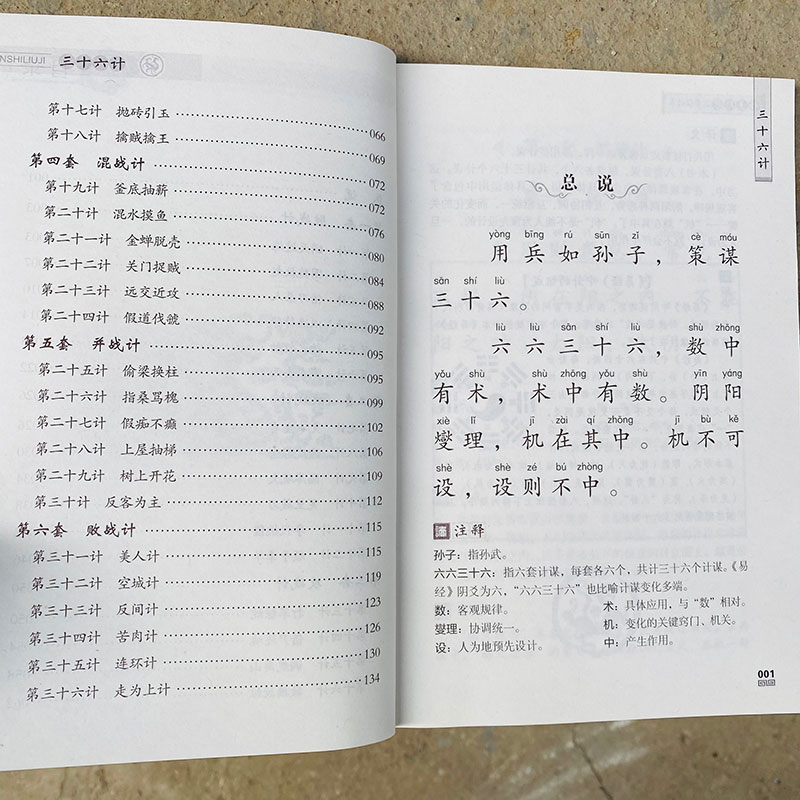 NSHILIUJI 三十六计
第十七计 抛砖引玉 066
第十八计 擒贼擒王 069
第四套 混战计 072
第十九计 釜底抽薪 072
第二十计 混水摸鱼 076
第二十一计 金蝉脱壳 080
第二十二计 关门捉贼 084
第二十三计 远交近攻 088
第二十四计 假道伐虢 092
第五套 并战计 095
第二十五计 偷梁换柱 095
第二十六计 指桑骂槐 099
第二十七计 假痴不癫 102
第二十八计 上屋抽梯 106
第二十九计 树上开花 109
第三十计 反客为主 112
第六套 败战计 115
第三十一计 美人计 115
第三十二计 空城计 119
第三十三计 反间计 123
第三十四计 苦肉计 126
第三十五计 连环计 130
第三十六计 走为上计 134
三十六计
总说
yòng bīng rú sūn zǐ cè móu
用兵如孙子，策谋
sān shí liù
三十六。
liù liù sān shí liù shù zhōng
六六三十六，数中
yǒu shù shù zhōng yǒu shù yīn yáng
有术，术中有数。阴阳
xiè lǐ jī zài qí zhōng jī bù kě
燮理，机在其中。机不可
shè shè zé bú zhòng
设，设则不中。
注释
孙子：指孙武。
六六三十六：指六套计谋，每套各六个，共计三十六个计谋。《易
经》阴爻为六，“六六三十六”也比喻计谋变化多端。
数：客观规律。 术：具体应用，与“数”相对。
燮理：协调统一。 机：变化的关键窍门、机关。
设：人为地预先设计。 中：产生作用。
001